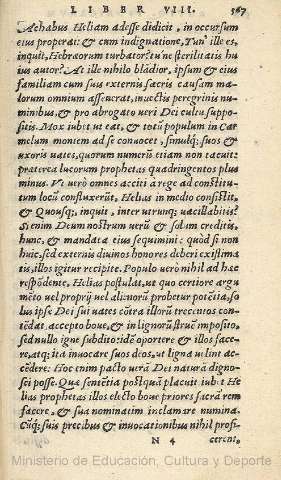 LIBER VIII. 567
Achabus Heliam adesse didicit, in occursum
eius properat: & cum indignatione, Tun' ille es,
inquit, Hebræorum turbator? tu ne sterilitatis hu
ius autor? At ille nihilo blādior, ipsum & eius
familiam cum suis externis sacris causam ma-
lorum omnium asseuerat, inuectis peregrinis nu-
minibus, & pro abrogato veri Dei cultu suppo-
sitis. Mox iubet ut eat, & totū populum in Car
melum montem ad se conuocet, simulq; suos &
uxoris uates, quorum numerū etiam non tacuit:
præterea lucorum prophetas quadringentos plus
minus. Vt uerò omnes acciti à rege ad constitu-
tum locū confluxerūt, Helias in medio consistit,
& Quousq;, inquit, inter utrunq; uacillabitis?
Si enim Deum nostrum uerū & solum creditis,
hunc, & mandata eius sequimini: quòd si non
hunc, sed externis diuinos honores deberi existima
tis, illos igitur recipite. Populo uerò nihil ad hæc
respōdente, Helias postulat, ut quo certiore argu
mēto uel proprij uel alienorū probetur potētia, so-
lus ipse Dei sui uates cōtra illorū trecentos con-
tēdat, accepto boue, & in lignorū strue imposito,
sed nullo igne subdito: idē oportere & illos face-
re, atq; ita inuocare suos deos, ut ligna uelint ac-
cēdere: Hoc enim pacto uerā Dei naturā digno-
sci posse. Quæ sentētia postquā placuit, iubet He
lias prophetas illos electo boue priores sacrū rem
facere, & sua nominatim inclamare numina.
Cūq; suis precibus & inuocationibus nihil profi-
N 4 cerent,
Ministerio de Educación, Cultura y Deporte